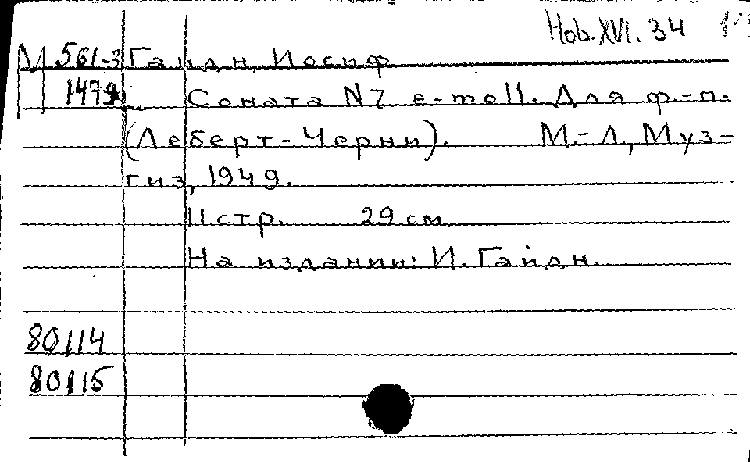 Hob. XVI. 34
М 561-3 Гайдн, Иосиф
1479
Соната N7 e-moll. Для ф.-п.
(Леберт-Черни). М.-Л., Муз-
гиз, 1949.
11 стр. 29 см
На издании: И. Гайдн.
80114
80115